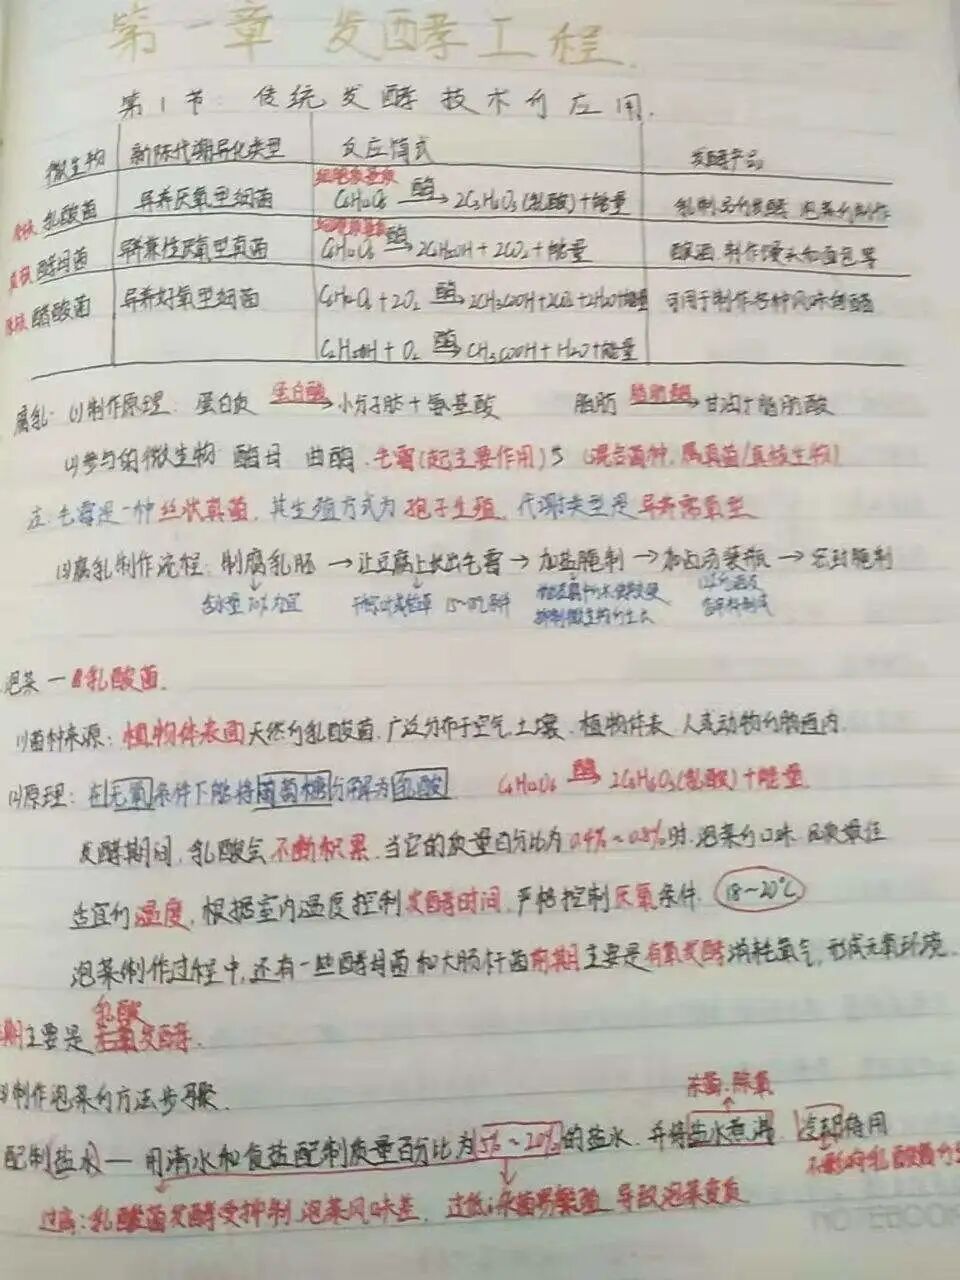 第一章 发酵工程
第1节：传统发酵技术的应用.
微生物 新陈代谢异化类型 反应简式 发酵产品
原核 乳酸菌 异养厌氧型细菌 细胞质基质 C6H12O6 酶→ 2C3H6O3(乳酸)+能量 乳制品的发酵 泡菜的制作
真核 酵母菌 异养兼性厌氧型真菌 C6H12O6 酶→ 2C2H5OH+2CO2+能量 酿酒.制作馒头和面包等
原核 醋酸菌 异养好氧型细菌 C6H12O6+2O2 酶→ 2CH3COOH+2CO2+2H2O+能量 可用于制作各种风味的醋
C2H5OH+O2 酶→ CH3COOH+H2O+能量
腐乳：(1)制作原理：蛋白质 蛋白酶→ 小分子肽+氨基酸 脂肪 脂肪酶→ 甘油+脂肪酸
(2)参与的微生物 酵母 曲 毛霉(起主要作用) (混合菌种,属真菌/真核生物)
毛霉是一种丝状真菌，其生殖方式为孢子生殖，代谢类型是异养需氧型
(3)腐乳制作流程：制腐乳胚→让豆腐上长出毛霉→加盐腌制→加卤汤装瓶→密封腌制
含水量70%为宜 15~18℃ 抑制微生物的生长
泡菜—乳酸菌.
(1)菌种来源：植物体表面天然的乳酸菌.广泛分布于空气.土壤.植物体表.人或动物的肠道内.
(2)原理：在无氧条件下能将葡萄糖分解为乳酸 C6H12O6 酶→ 2C3H6O3(乳酸)+能量
发酵期间,乳酸会不断积累,当它的质量百分比为0.4%~0.8%时,泡菜的口味.品质最佳
适宜的温度,根据室内温度控制发酵时间.严格控制厌氧条件.18~20℃
泡菜制作过程中,还有一些酵母菌和大肠杆菌前期主要是有氧发酵消耗氧气,形成无氧环境.
乳酸
期主要是发酵.
制作泡菜的方法步骤.
杀菌.除氧
配制盐水—用清水和食盐配制质量百分比为5%~20%的盐水,并将盐水煮沸.冷却待用
不影响乳酸菌的
过高：乳酸菌发酵受抑制.泡菜风味差. 过低：杂菌易繁殖.导致泡菜变质